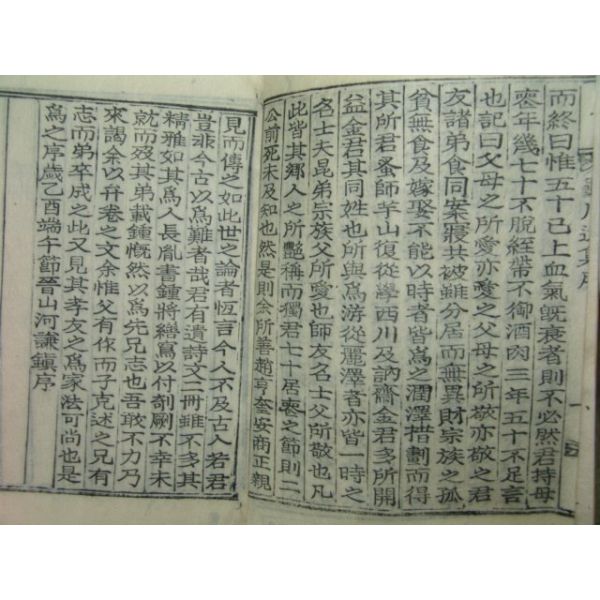 而終曰惟五十已上血氣旣衰者則不必然君持母
喪年幾七十不脫絰帶不御酒肉三年五十不足言
也記曰父母之所愛亦愛之父母之所敬亦敬之君
友諸弟食同案寢共被雖分居而無異財宗族之孤
貧無食及嫁娶不能以時者皆爲之潤澤措劃而得
其所君蚤師芋山復從學西川及訥齋金君多所開
益金君其同姓也所與爲游從麗澤者亦皆一時之
名士夫昆弟宗族父所愛也師友名士父所敬也凡
此皆其鄉人之所艶稱而獨君七十居喪之節則二
公前死未及知也然是則余所善趙亨奎安商正親
見而傳之如此世之論者恆言今人不及古人若君
豈非今古以爲難者哉君有遺詩文二冊雖不多其
精雅如其爲人長胤書鍾將繕寫以付剞劂不幸未
就而歿其弟載鍾慨然以爲先兄志也吾敢不力乃
來謁余以弁卷之文余惟父有作而子克述之兄有
志而弟卒成之此又見其孝友之爲家法可尚也是
爲之序歲乙酉端午節晉山河謙鎭序